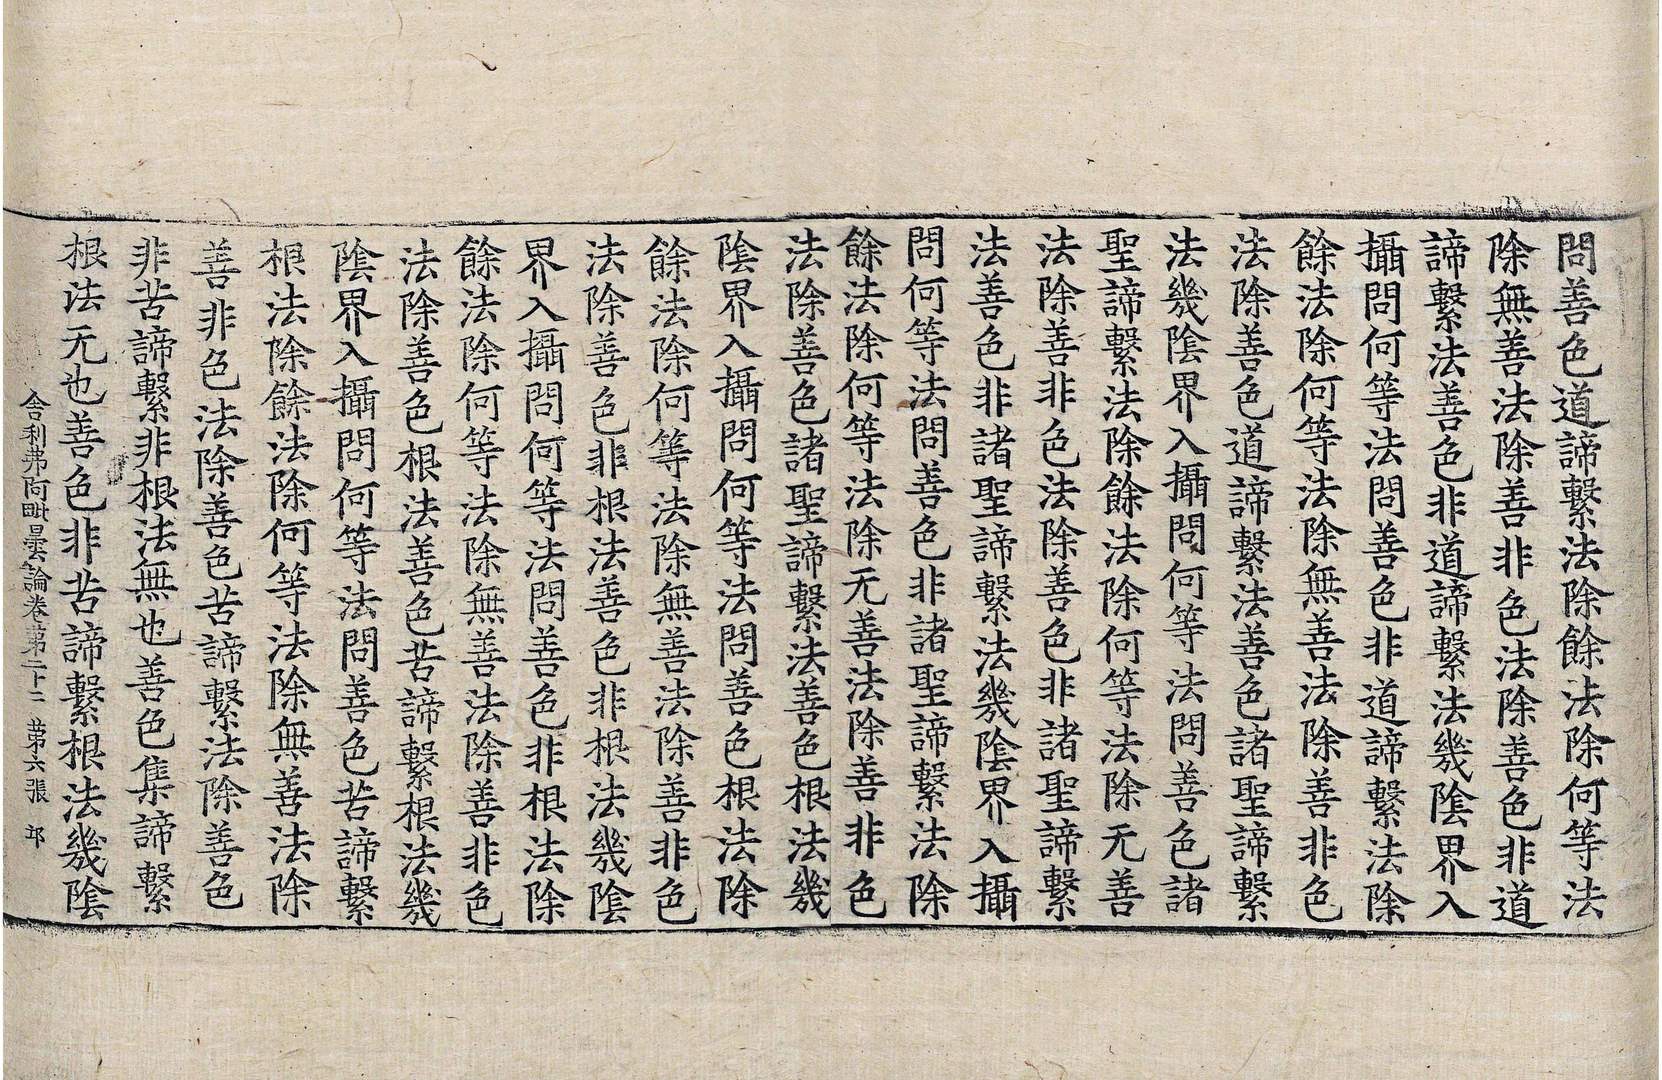 問善色道諦繫法除餘法除何等法
除無善法除善非色法除善色非道
諦繫法善色非道諦繫法幾陰界入
攝問何等法問善色非道諦繫法除
餘法除何等法除無善法除善非色
法除善色道諦繫法善色諸聖諦繫
法幾陰界入攝問何等法問善色諸
聖諦繫法除餘法除何等法除无善
法除善非色法除善色非諸聖諦繫
法善色非諸聖諦繫法幾陰界入攝
問何等法問善色非諸聖諦繫法除
餘法除何等法除无善法除善非色
法除善色諸聖諦繫法善色根法幾
陰界入攝問何等法問善色根法除
餘法除何等法除無善法除善非色
法除善色非根法善色非根法幾陰
界入攝問何等法問善色非根法除
餘法除何等法除無善法除善非色
法除善色根法善色苦諦繫根法幾
陰界入攝問何等法問善色苦諦繫
根法除餘法除何等法除無善法除
善非色法除善色苦諦繫法除善色
非苦諦繫非根法無也善色集諦繫
根法无也善色非苦諦繫根法幾陰
舍利弗阿毗曇論卷第二十二 第六張 邙